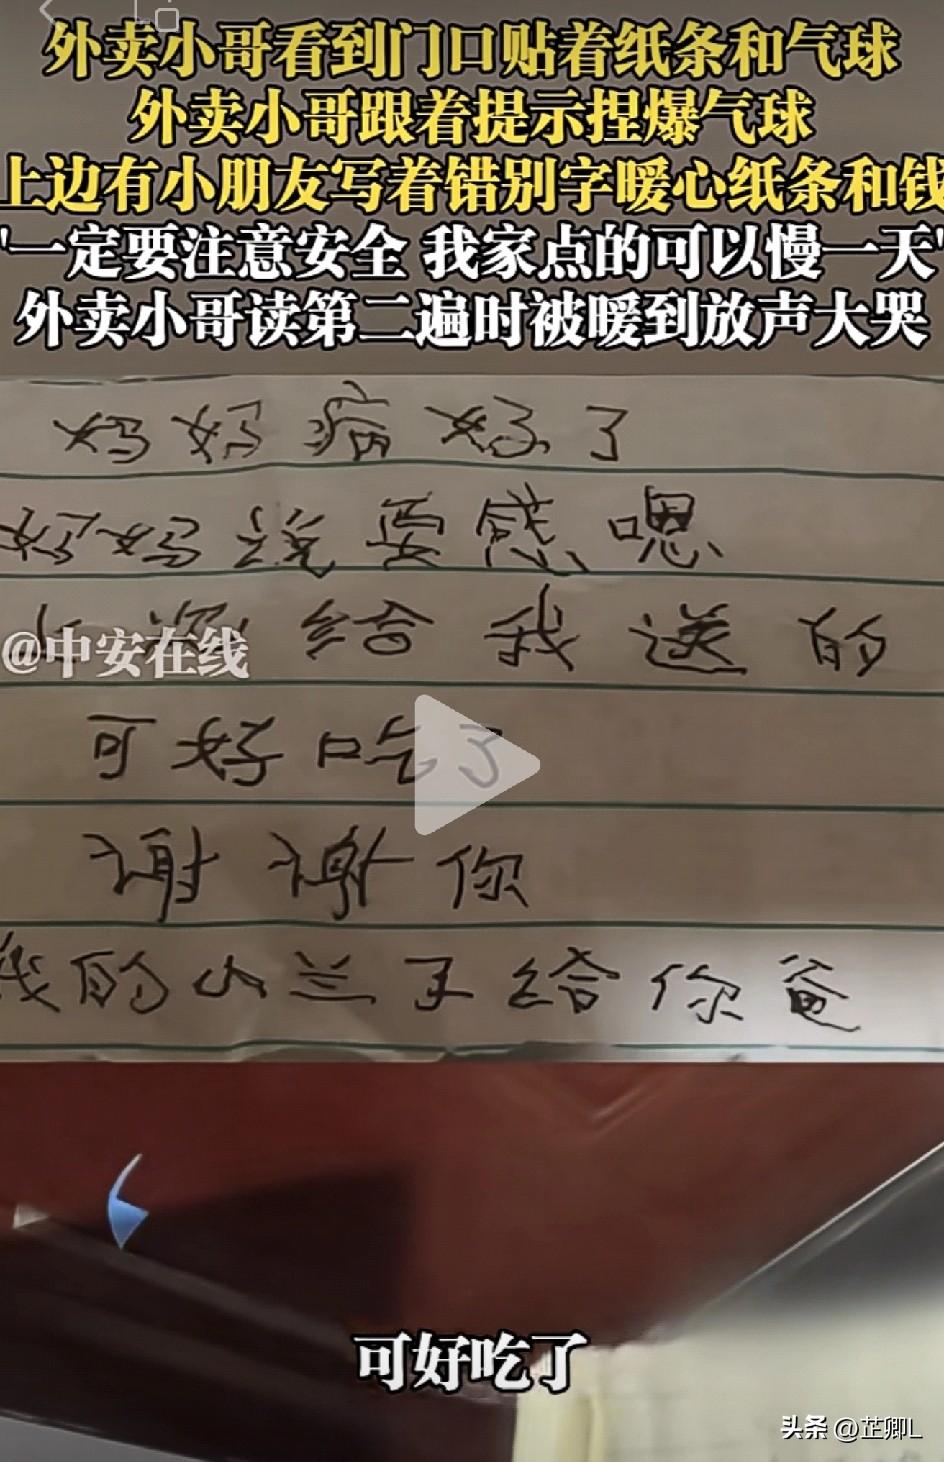 外卖小哥看到门口贴着纸条和气球
外卖小哥跟着提示捏爆气球
上边有小朋友写着错别字暖心纸条和钱
"一定要注意安全 我家点的可以慢一天"
外卖小哥读第二遍时被暖到放声大哭
妈妈病好了
妈妈说要感嗯
给我送的
@中安在线
可好吃了
谢谢你
我的山兰子给你爸
可好吃了
头条 @芷卿L